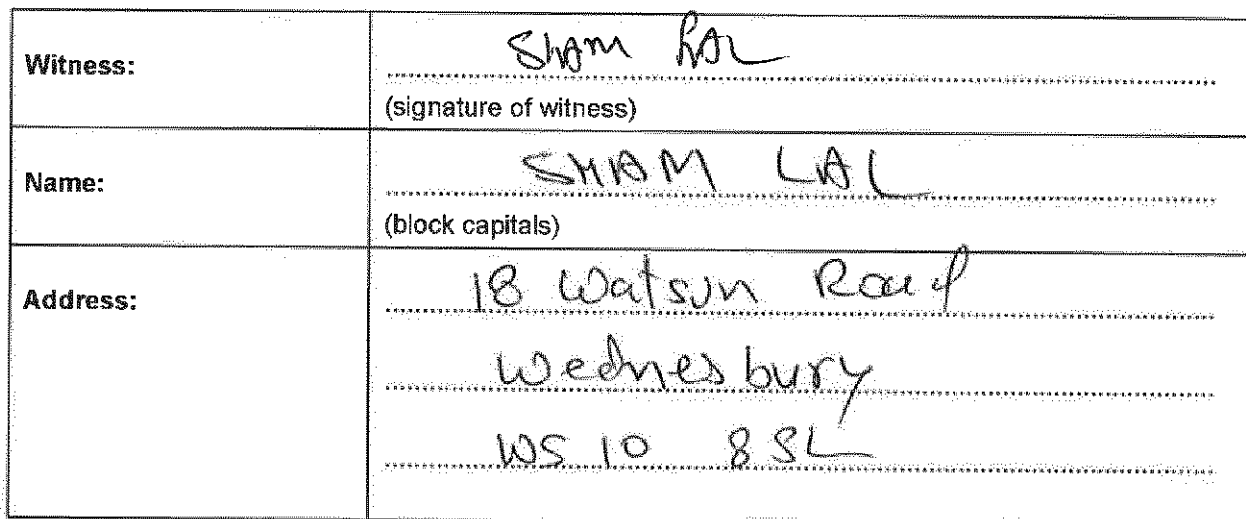 Witness:
Sham LAL
(signature of witness)
Name:
SHAM LAL
(block capitals)
Address:
18 Watson Road
Wednesbury
WS10 8SL